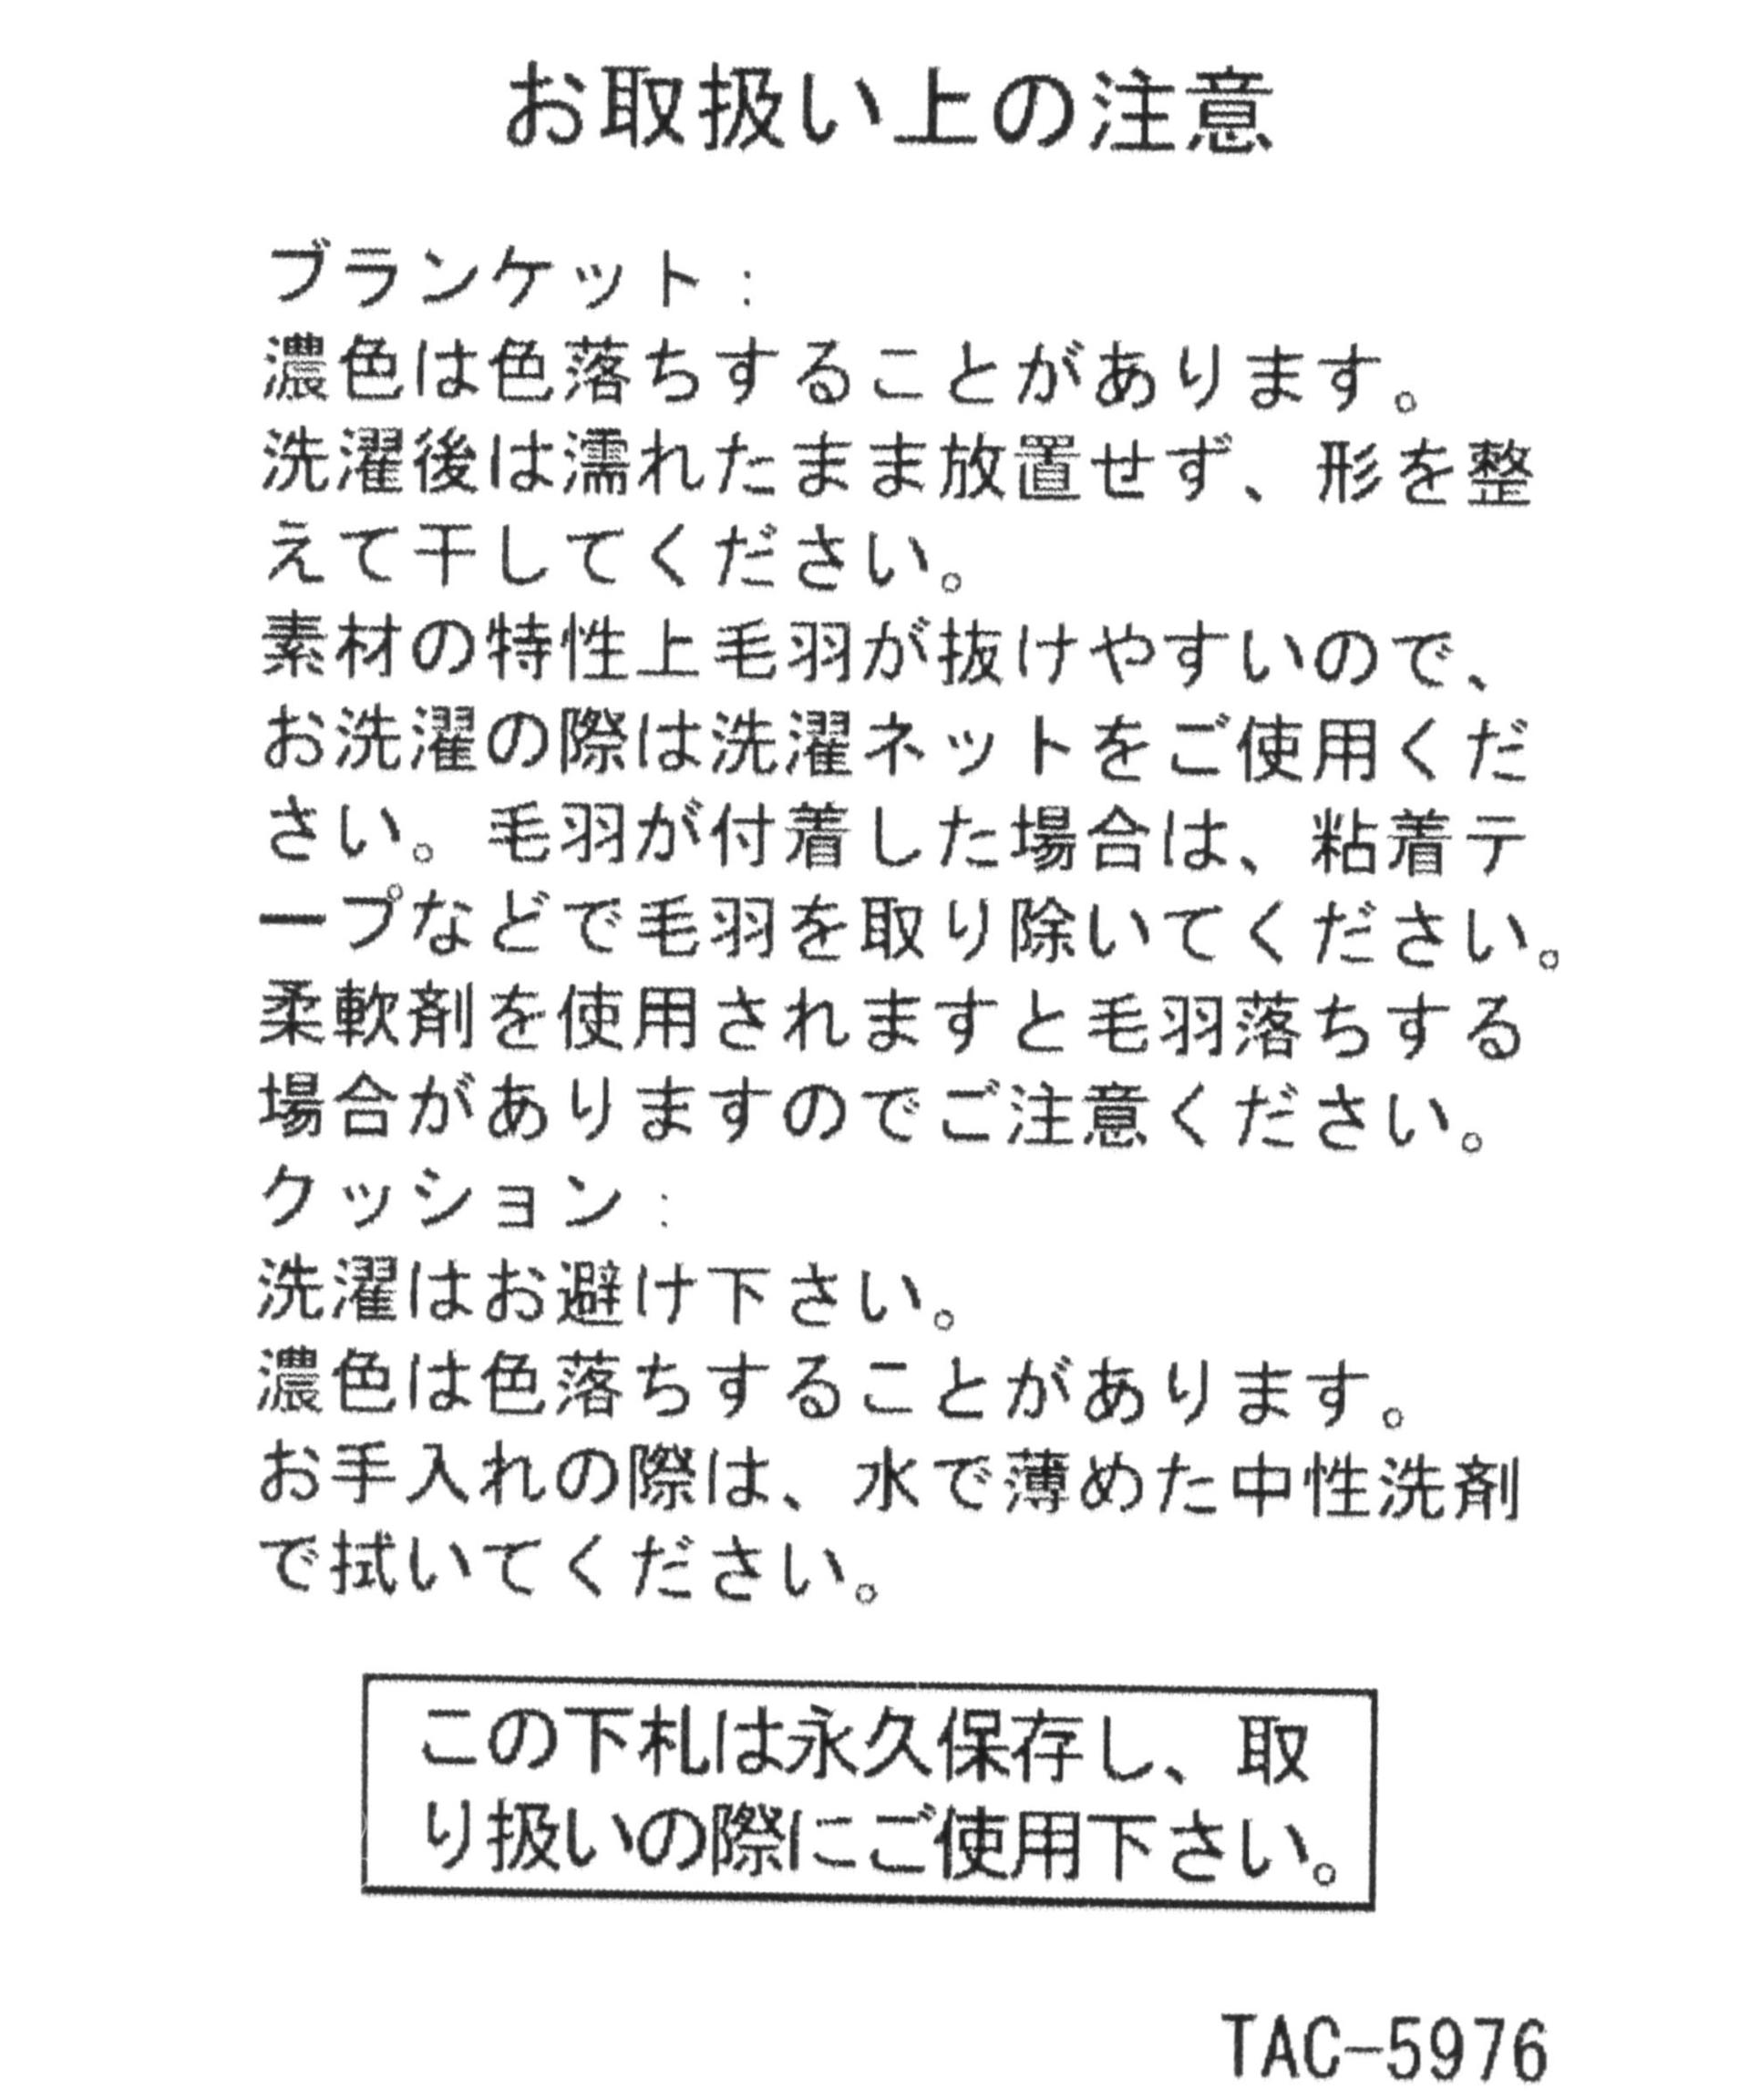 お取扱い上の注意
ブランケット:
濃色は色落ちすることがあります。
洗濯後は濡れたまま放置せず、形を整
えて干してください。
素材の特性上毛羽が抜けやすいので、
お洗濯の際は洗濯ネットをご使用くだ
さい。毛羽が付着した場合は、粘着テ
ープなどで毛羽を取り除いてください。
柔軟剤を使用されますと毛羽落ちする
場合がありますのでご注意ください。
クッション:
洗濯はお避け下さい。
濃色は色落ちすることがあります。
お手入れの際は、水で薄めた中性洗剤
で拭いてください。
この下札は永久保存し、取
り扱いの際にご使用下さい。
TAC-5976